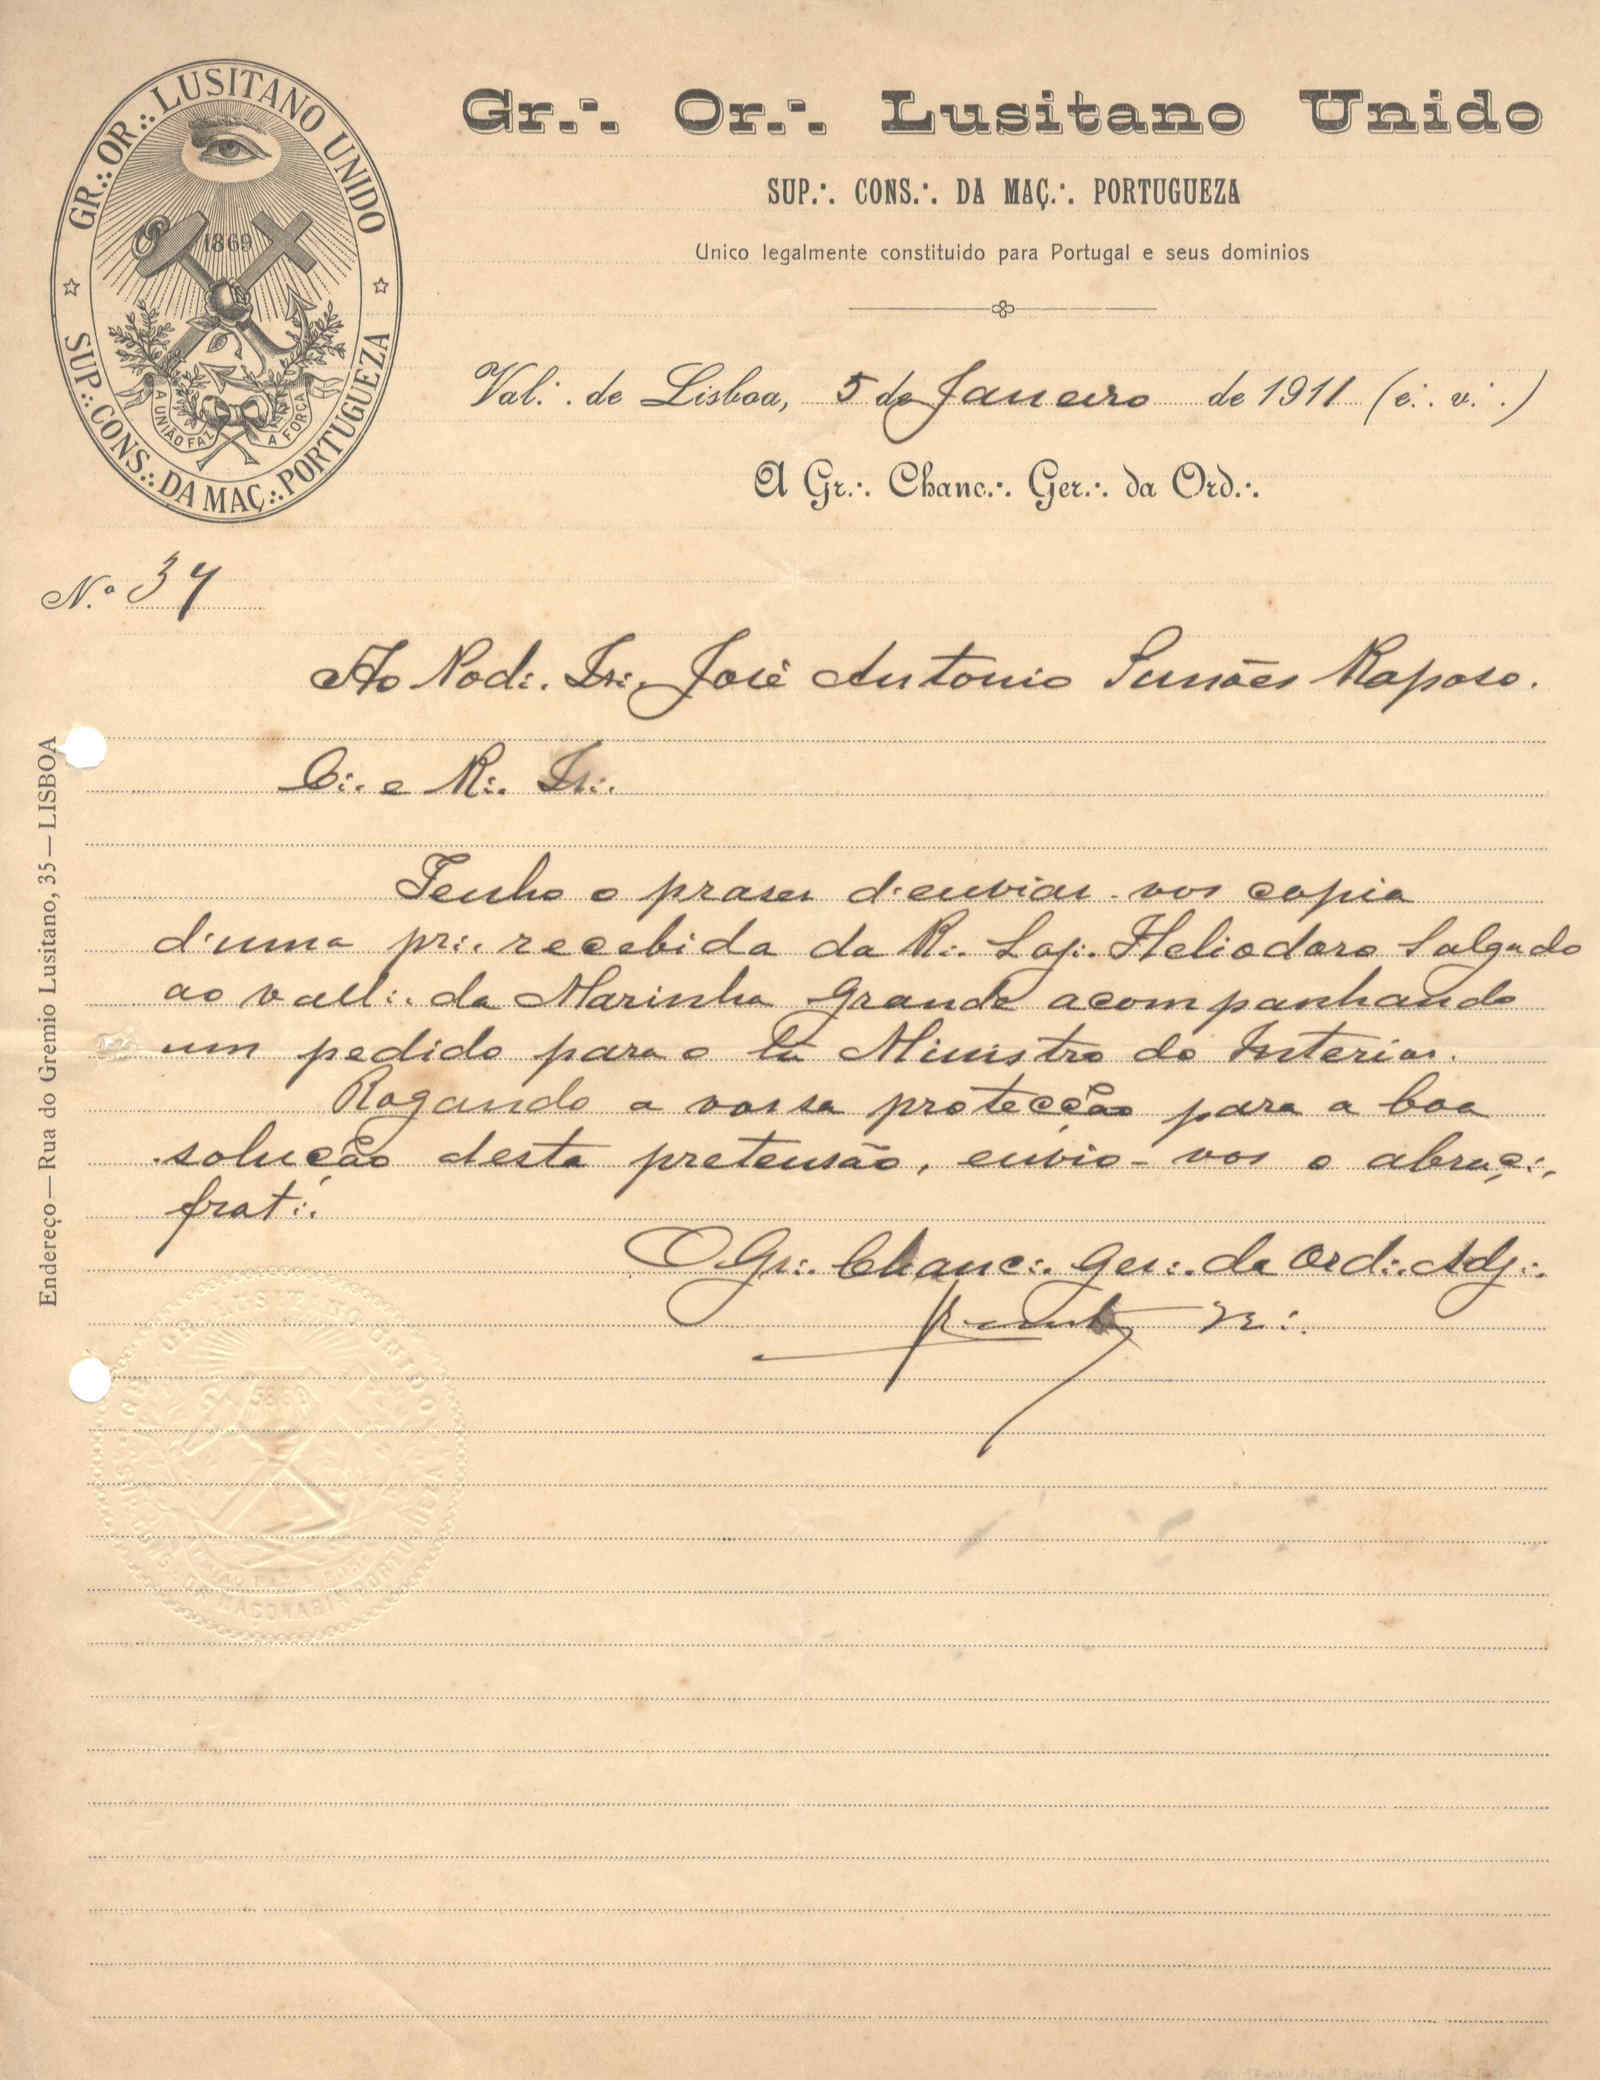 GR∴ OR∴ LUSITANO UNIDO
SUP∴ CONS∴ DA MAÇ∴ PORTUGUEZA
1869
A UNIÃO FAZ A FORÇA
Gr∴ Or∴ Lusitano Unido
SUP∴ CONS∴ DA MAÇ∴ PORTUGUEZA
Unico legalmente constituido para Portugal e seus dominios
Val∴ de Lisboa, 5 de Janeiro de 1911 (e∴ v∴)
A Gr∴ Chanc∴ Ger∴ da Ord∴
N.º 37
Ao Pod∴ Ir∴ José Antonio Simões Raposo.
C∴ e R∴ Ir∴
Tenho o praser d'enviar-vos copia
d'uma pr∴ recebida da R∴ Loj∴ Heliodoro Salgado
ao vall∴ da Marinha Grande acompanhando
um pedido para o Ministro do Interior.
Rogando a vossa protecção para a boa
solução desta pretensão, envio-vos o abraç∴
frat∴
O Gr∴ Chanc∴ Ger∴ da Ord∴ Adj∴
Endereço — Rua do Gremio Lusitano, 35 — LISBOA